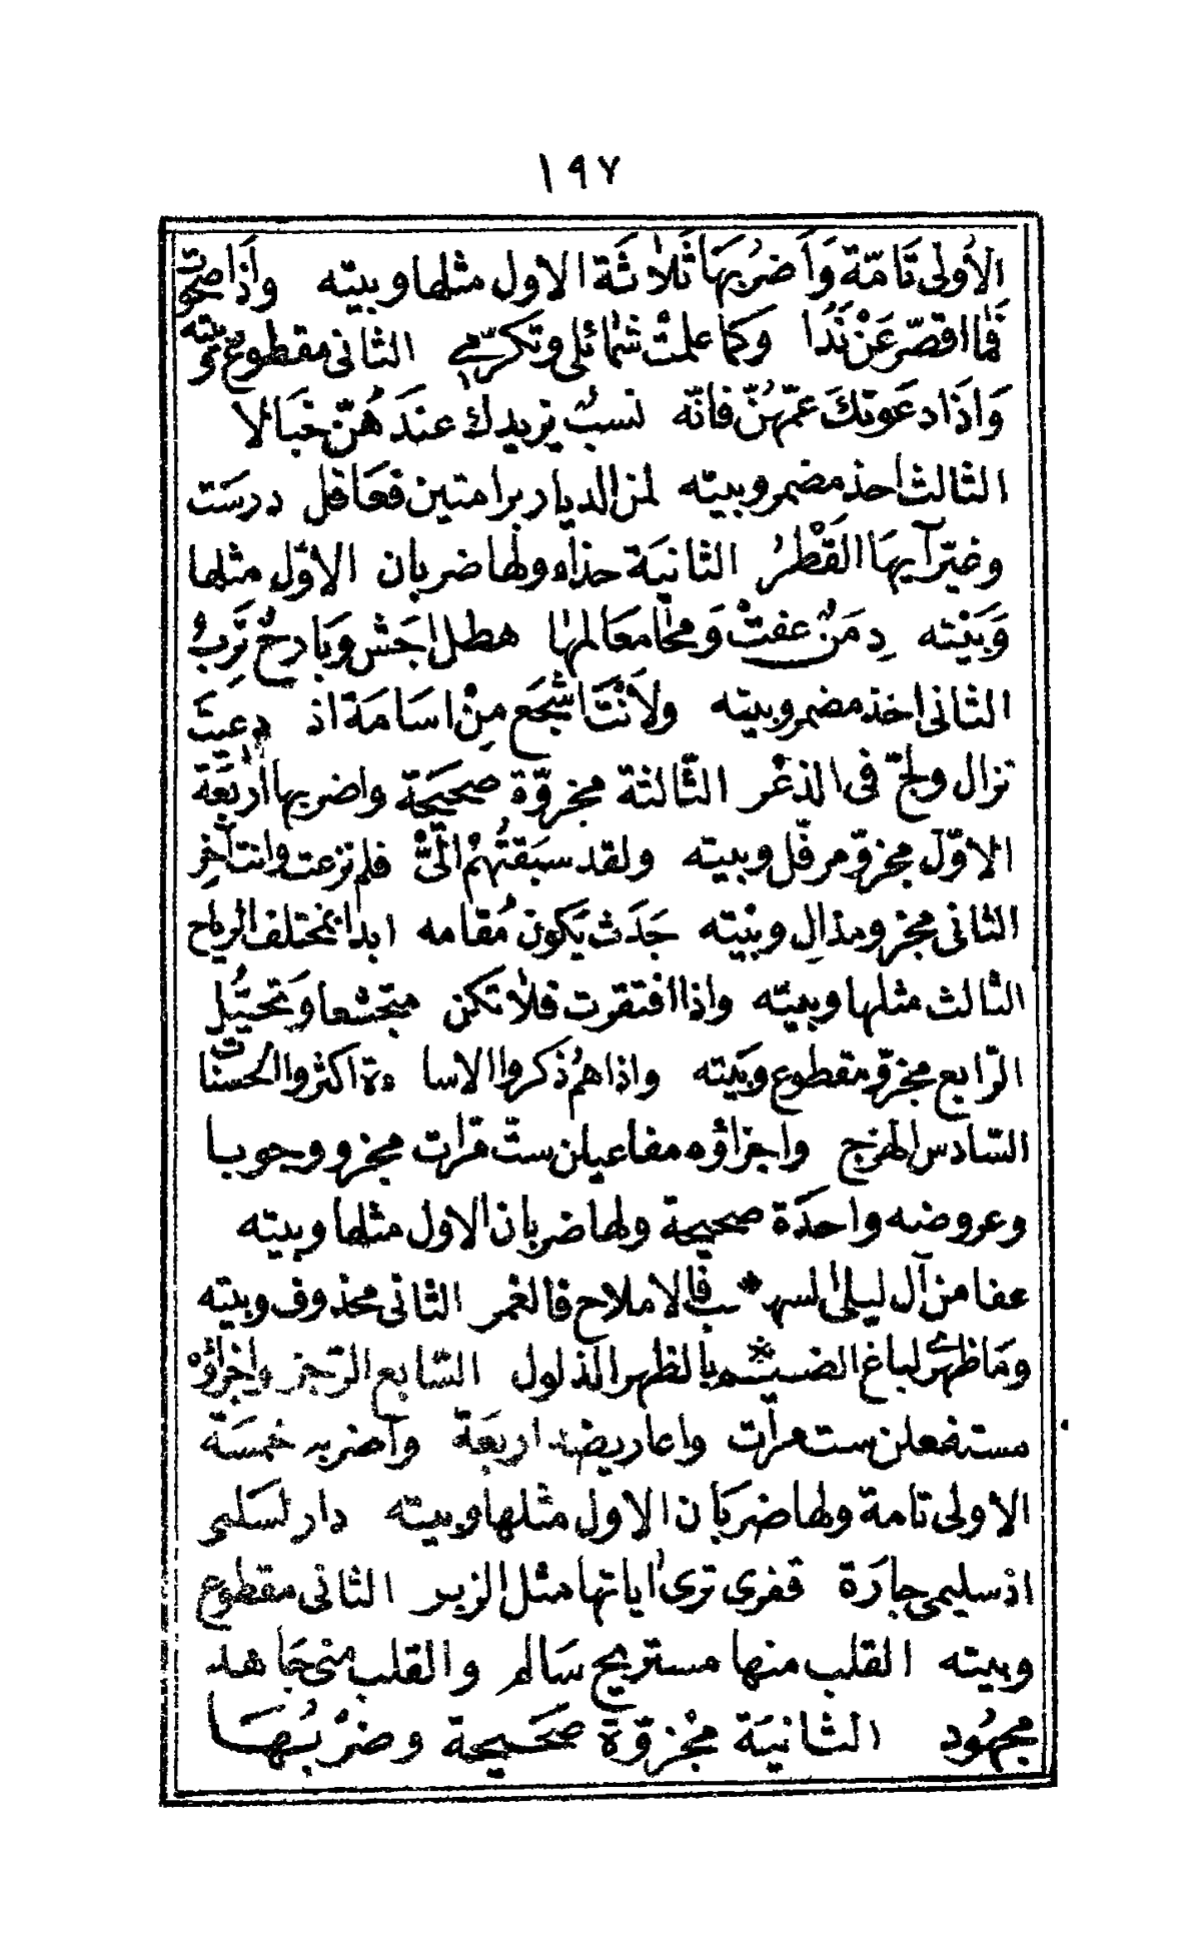 ١٩٧
الأولى تَامّة وَأَضرُبهَا ثَلاثَة الاول مثلها وبيته وَإذا صحوت
فَما اقصّر عَنْ نَدًا وكما علمتْ شمائلى وتكرّمي الثانى مقطوع وبيته
وَاذَا دعَونك عمّهنّ فانّه نسبٌ يزيدك عندَهُنّ خبَالا
الثالث احذ مضمر وبيته لمن الديار برامتين فعَاقل درسَت
وغيّر آيهَا القَطْرُ الثانيَة حذاء ولها ضربان الاوّل مثلها
وَبَيْته دِمَنٌ عفتْ وَمحَا معَالمهَا هطل اجَشّ وبَارحٌ تَرِبُ
الثانى احذ مضمر وبيته ولَاَنْتَ اشجَع مِنْ اسَامَة اذ دعيَت
نزال ولجّ فى الذعْر الثّالثة مجزوّة صحيحَة واضربها اربَعَة
الاوّل مجزوّ مرفّل وبيته ولقد سبَقتُهُمْ الَىَّ فلم نزعت وانت آخِر
الثانى مجزو مذالِ وبيْته جَدَث يَكون مُقامه ابدا بمختلف الرياح
الثالث مثلها وبيته واذا افتقرت فلا تكن متجشعا وَتجمَّل
الرّابع مجزوّ مقطوع وبَيته واذا همُ ذكروا الاسا ءة اكثروا الحسنات
السّادس الهزج واجزاؤه مفاعيلن ستّ مرات مجزو وجوبا
وعروضه واحدَة صحيحة ولها ضربان الاول مثلها وبيته
عفا من آل ليلى السهـ * ـب فالاملاح فالغمر الثانى محذوف وبيته
وَما ظهرى لباغ الضيـ * ـم بالظهر الذلول السّابع الرّجز واجزاؤه
مستفعلن ست مرّات واعاريضه اربعَة وأضربه خمسَة
الاولى تامة ولها ضربَان الاول مثلها وبيته دار لسَلمى
اذ سليمى جارَة قفرى ترى اياتها مثل الزبر الثانى مقطوع
وبيته القلب منها مستريح سَالم والقلب منى جَاهد
مجهُود الثانيَة مجْزوّة صحَيحة وضرْبُهَا